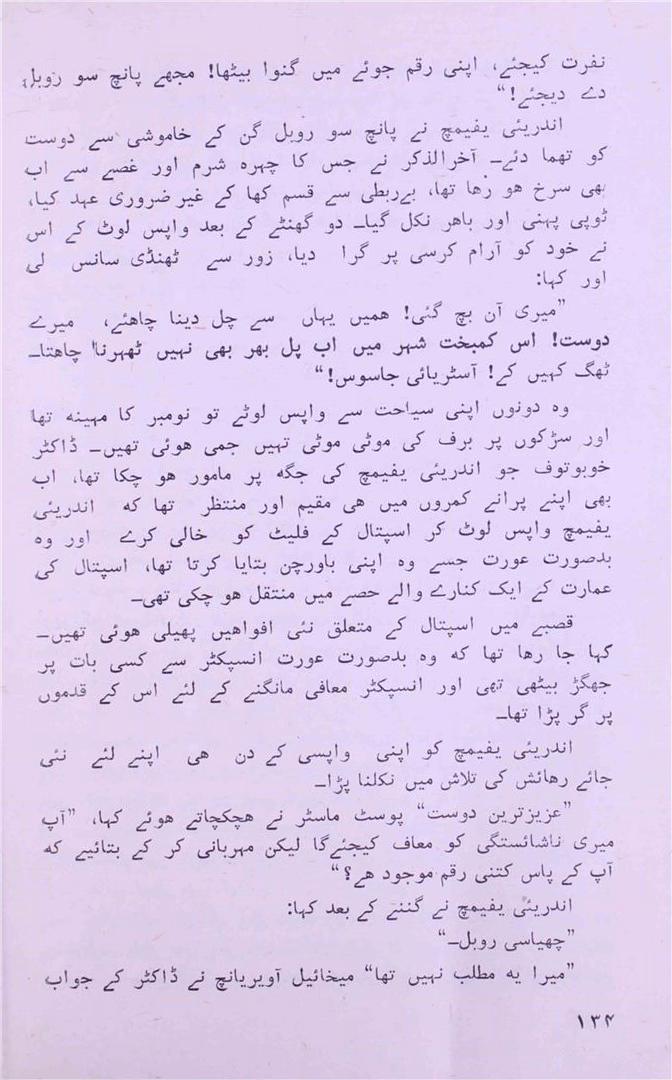 نفرت کیجئے، اپنی رقم جوئے میں گنوا بیٹھا! مجھے پانچ سو روبل
دے دیجئے!“
اندریئی یفیمچ نے پانچ سو روبل گن کے خاموشی سے دوست
کو تھما دئے۔ آخرالذکر نے جس کا چہرہ شرم اور غصے سے اب
بھی سرخ ھو رھا تھا، بےربطی سے قسم کھا کے غیر ضروری عہد کیا،
ٹوپی پہنی اور باھر نکل گیا۔ دو گھنٹے کے بعد واپس لوٹ کے اس
نے خود کو آرام کرسی پر گرا دیا، زور سے ٹھنڈی سانس لی
اور کہا:
”میری آن بچ گئی! ھمیں یہاں سے چل دینا چاھئے، میرے
دوست! اس کمبخت شہر میں اب پل بھر بھی نہیں ٹھہرنا چاھتا۔
ٹھگ کہیں کے! آسٹریائی جاسوس!“
وہ دونوں اپنی سیاحت سے واپس لوٹے تو نومبر کا مہینہ تھا
اور سڑکوں پر برف کی موٹی موٹی تہیں جمی ھوئی تھیں۔ ڈاکٹر
خوبوتوف جو اندریئی یفیمچ کی جگہ پر مامور ھو چکا تھا، اب
بھی اپنے پرانے کمروں میں ھی مقیم اور منتظر تھا کہ اندریئی
یفیمچ واپس لوٹ کر اسپتال کے فلیٹ کو خالی کرے اور وہ
بدصورت عورت جسے وہ اپنی باورچن بتایا کرتا تھا، اسپتال کی
عمارت کے ایک کنارے والے حصے میں منتقل ھو چکی تھی۔
قصبے میں اسپتال کے متعلق نئی افواھیں پھیلی ھوئی تھیں۔
کہا جا رھا تھا کہ وہ بدصورت عورت انسپکٹر سے کسی بات پر
جھگڑ بیٹھی تھی اور انسپکٹر معافی مانگنے کے لئے اس کے قدموں
پر گر پڑا تھا۔
اندریئی یفیمچ کو اپنی واپسی کے دن ھی اپنے لئے نئی
جائے رھائش کی تلاش میں نکلنا پڑا۔
”عزیزترین دوست“ پوسٹ ماسٹر نے ھچکچاتے ھوئے کہا، ”آپ
میری ناشائستگی کو معاف کیجئےگا لیکن مہربانی کر کے بتائیے کہ
آپ کے پاس کتنی رقم موجود ھے؟“
اندریئی یفیمچ نے گننے کے بعد کہا:
”چھیاسی روبل۔“
”میرا یہ مطلب نہیں تھا“ میخائیل آویریانچ نے ڈاکٹر کے جواب
۱۳۴